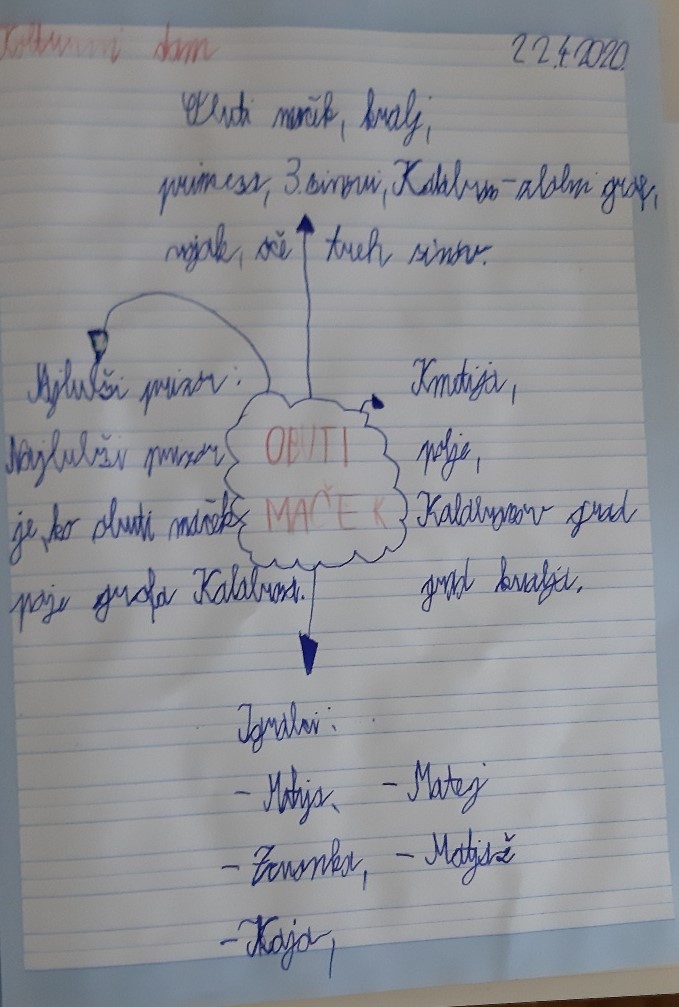 Kulturni dan
22.4.2020
Obuti maček, kralj,
princesa, 3 sinovi, Kalabron-zlobni grof,
vojak, oče treh sinov.
Najljubši prizor:
Najljubši prizor
je, ko obuti maček
poje grofa Kalabrona.
OBUTI
MAČEK
Kmetija,
polje,
Kalabronov grad
grad kralja.
Igralci:
- Matija, - Matej
- Zvonka, - Matjaž
- Kaja,